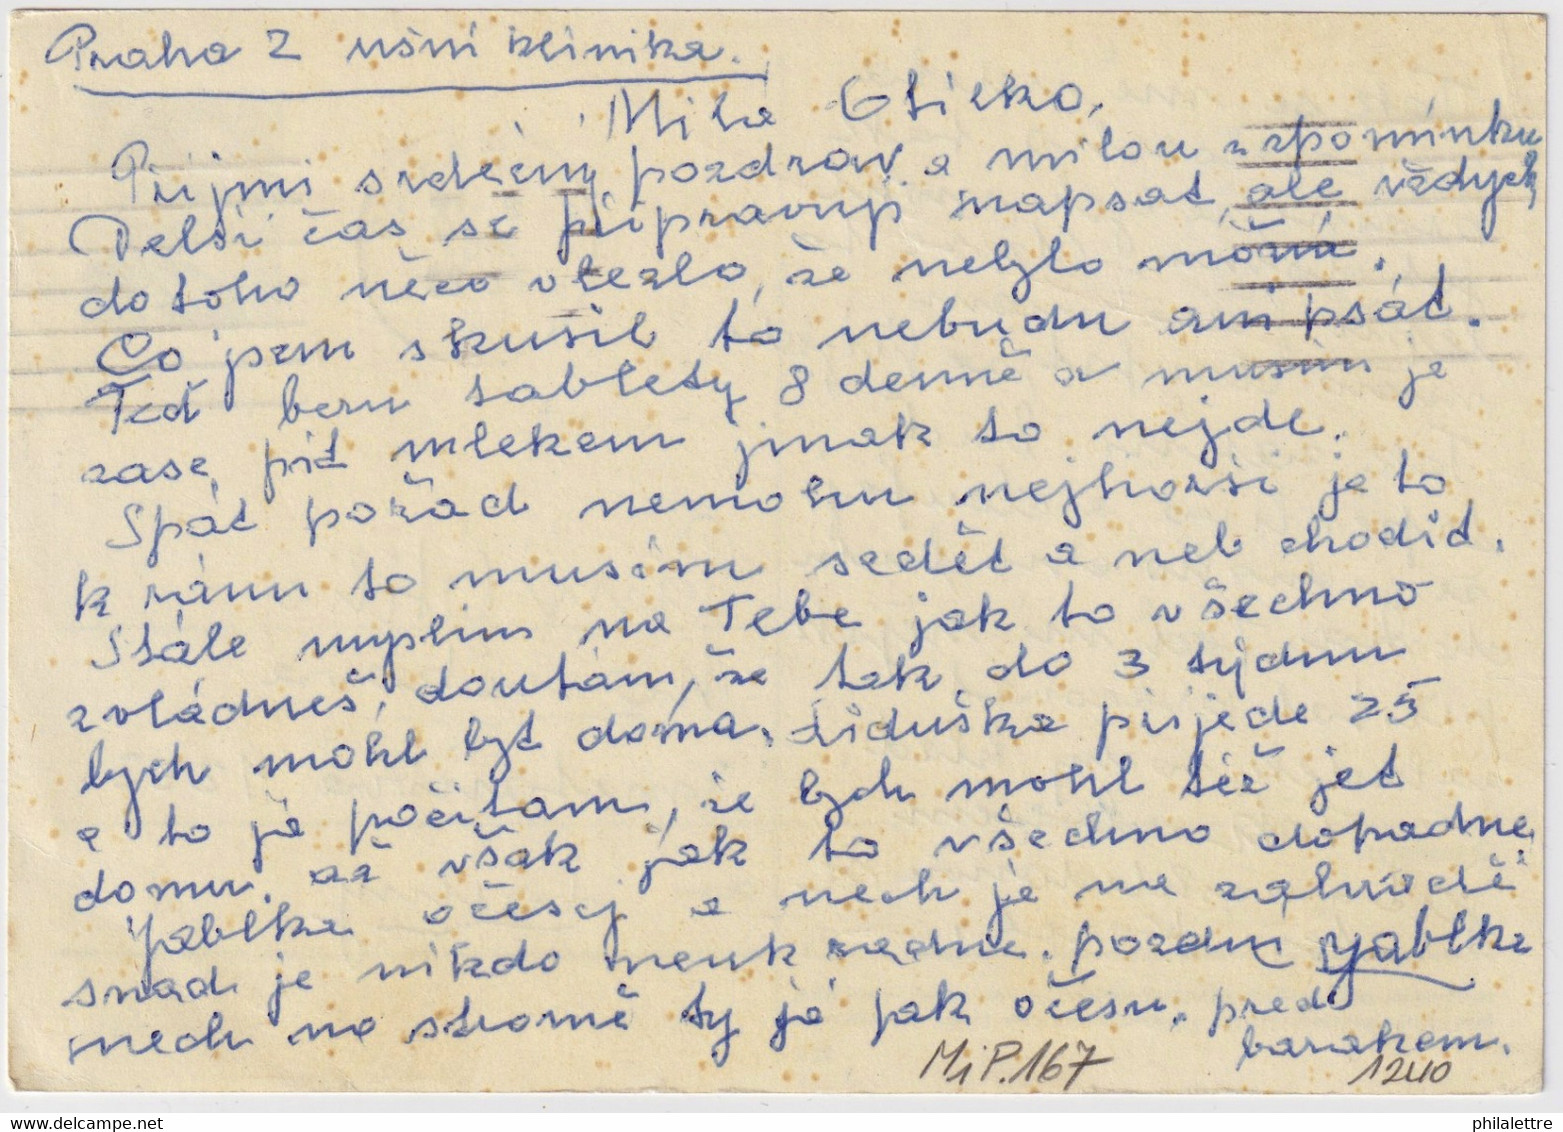 Praha 2 ušní klinika.
Milá Otilko,
Přijmi srdečný pozdrav a milou vzpomínku
Delší čas se připravuji napsat, ale vždycky
do toho něco vlezlo, že nebylo možná.
Co jsem skusil to nebudu ani psát.
Teď beru tablety 8 denně a musím je
zase pít mlékem jinak to nejde.
Spát pořád nemohu nejhorší je to
k ránu to musím sedět a neb chodit.
Stále myslím na Tebe jak to všechno
zvládneš, doufám, že tak do 3 týdnu
bych mohl být doma. Liduška přijede 25
a to já počítám, že bych mohl též jet
domu, až však jak to všechno dopadne.
Jablka očesej a nech je na zahradě
snad je nikdo neukradne. pozdní Jablka
nech na stromě ty já pak očesu. před
barakem.
MiP.167
1240
philalettre